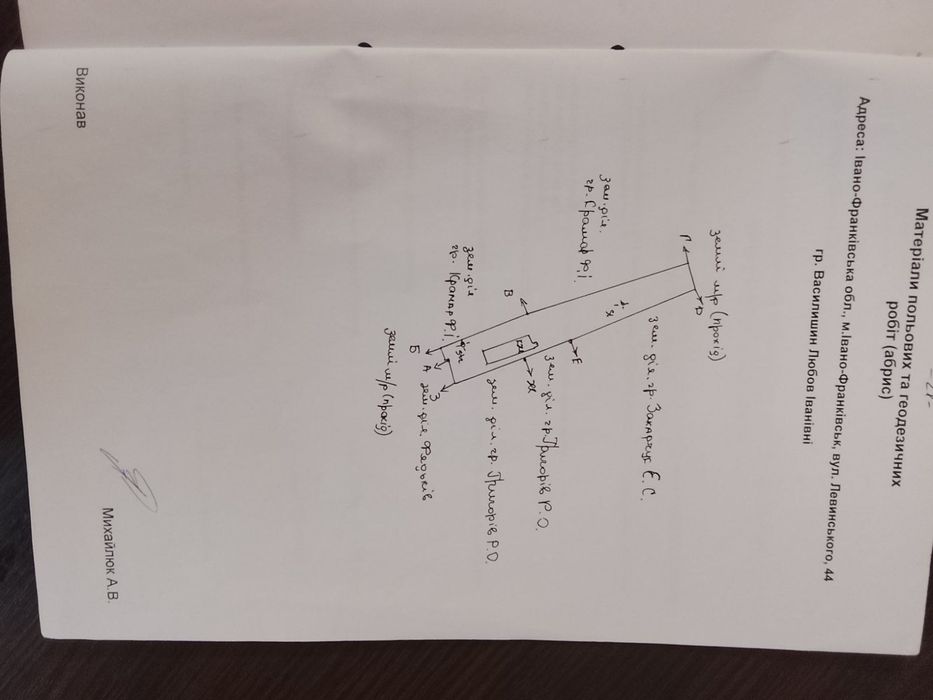 Матеріали польових та геодезичних
робіт (абрис)
Адреса: Івано-Франківська обл., м.Івано-Франківськ, вул. Левинського, 44
гр. Василишин Любов Іванівні
землі м/р (прохід)
Г
D
зем. діл.
гр. Крамар Ф.І.
зем. діл. гр. Захарчук Є.С.
В
Е
зем. діл. гр. Григорів Р.О.
Ж
зем. діл. гр. Григорів Р.О.
зем. діл
гр. Крамар Ф.І.
Б
А
З
зем. діл. Федьків
землі м/р (прохід)
Виконав
Михайлюк А.В.